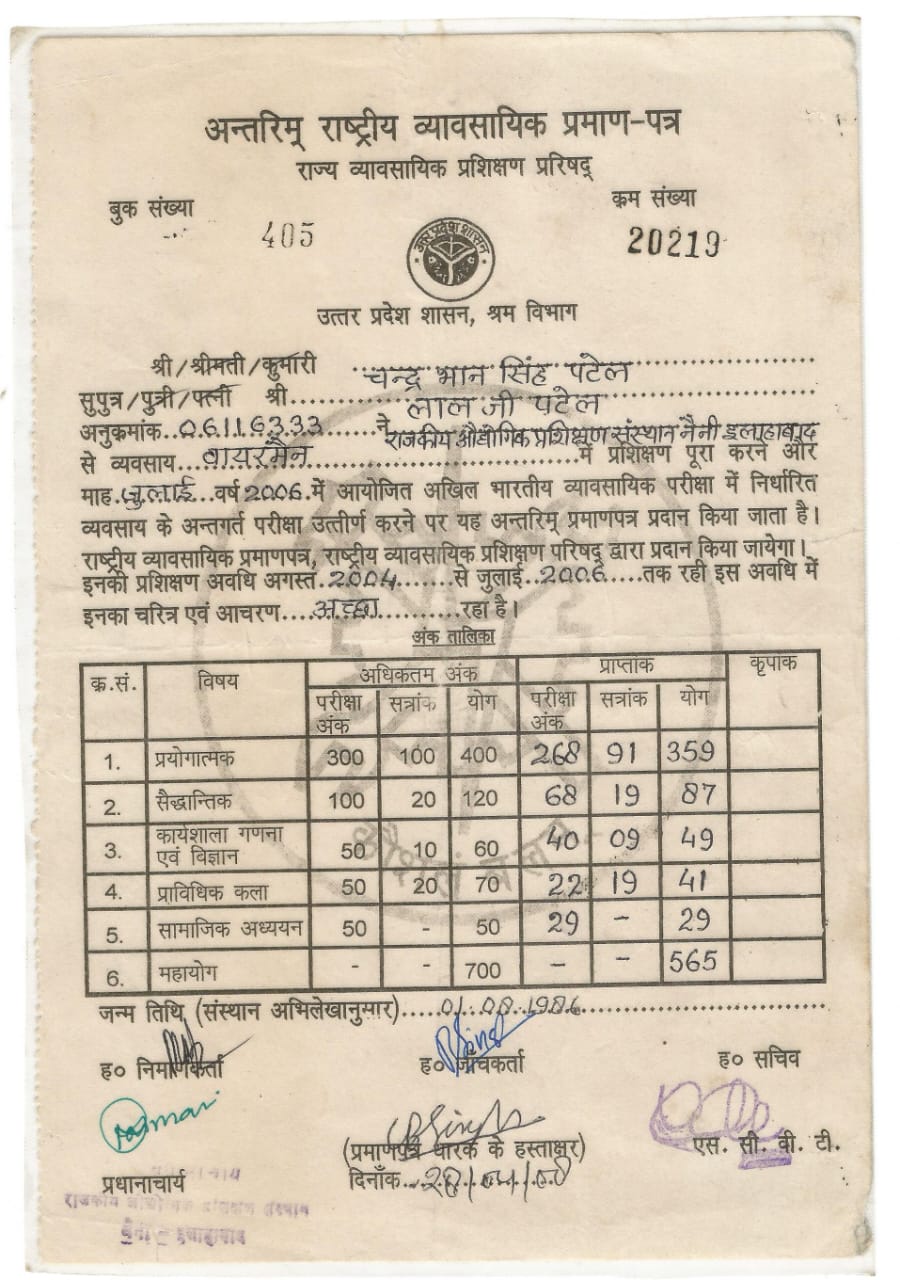 अन्तरिम् राष्ट्रीय व्यावसायिक प्रमाण-पत्र
राज्य व्यावसायिक प्रशिक्षण प्ररिषद्
बुक संख्या 405 क्रम संख्या 20219
उत्तर प्रदेश शासन
उत्तर प्रदेश शासन, श्रम विभाग
श्री/श्रीमती/कुमारी चन्द्र भान सिंह पटेल
सुपुत्र/पुत्री/पत्नी श्री लाल जी पटेल
अनुक्रमांक 06116333 ने राजकीय औद्योगिक प्रशिक्षण संस्थान नैनी इलाहाबाद
से व्यवसाय वायरमैन में प्रशिक्षण पूरा करने और
माह जुलाई वर्ष 2006 में आयोजित अखिल भारतीय व्यावसायिक परीक्षा में निर्धारित
व्यवसाय के अन्तगर्त परीक्षा उत्तीर्ण करने पर यह अन्तरिम् प्रमाणपत्र प्रदान किया जाता है।
राष्ट्रीय व्यावसायिक प्रमाणपत्र, राष्ट्रीय व्यावसायिक प्रशिक्षण परिषद् द्वारा प्रदान किया जायेगा।
इनकी प्रशिक्षण अवधि अगस्त 2004 से जुलाई 2006 तक रही इस अवधि में
इनका चरित्र एवं आचरण अच्छा रहा है।
अंक तालिका
क्र.सं. विषय अधिकतम अंक प्राप्तांक कृपांक
परीक्षा अंक सत्रांक योग परीक्षा अंक सत्रांक योग
1. प्रयोगात्मक 300 100 400 268 91 359
2. सैद्धान्तिक 100 20 120 68 19 87
3. कार्यशाला गणना एवं विज्ञान 50 10 60 40 09 49
4. प्राविधिक कला 50 20 70 22 19 41
5. सामाजिक अध्ययन 50 - 50 29 - 29
6. महायोग - - 700 - - 565
जन्म तिथि (संस्थान अभिलेखानुसार) 01.08.1986
ह० निर्माणकर्ता ह० जाँचकर्ता ह० सचिव
(प्रमाणपत्र धारक के हस्ताक्षर) एस. सी. वी. टी.
प्रधानाचार्य दिनाँक
राजकीय औद्योगिक प्रशिक्षण संस्थान
नैनी - इलाहाबाद